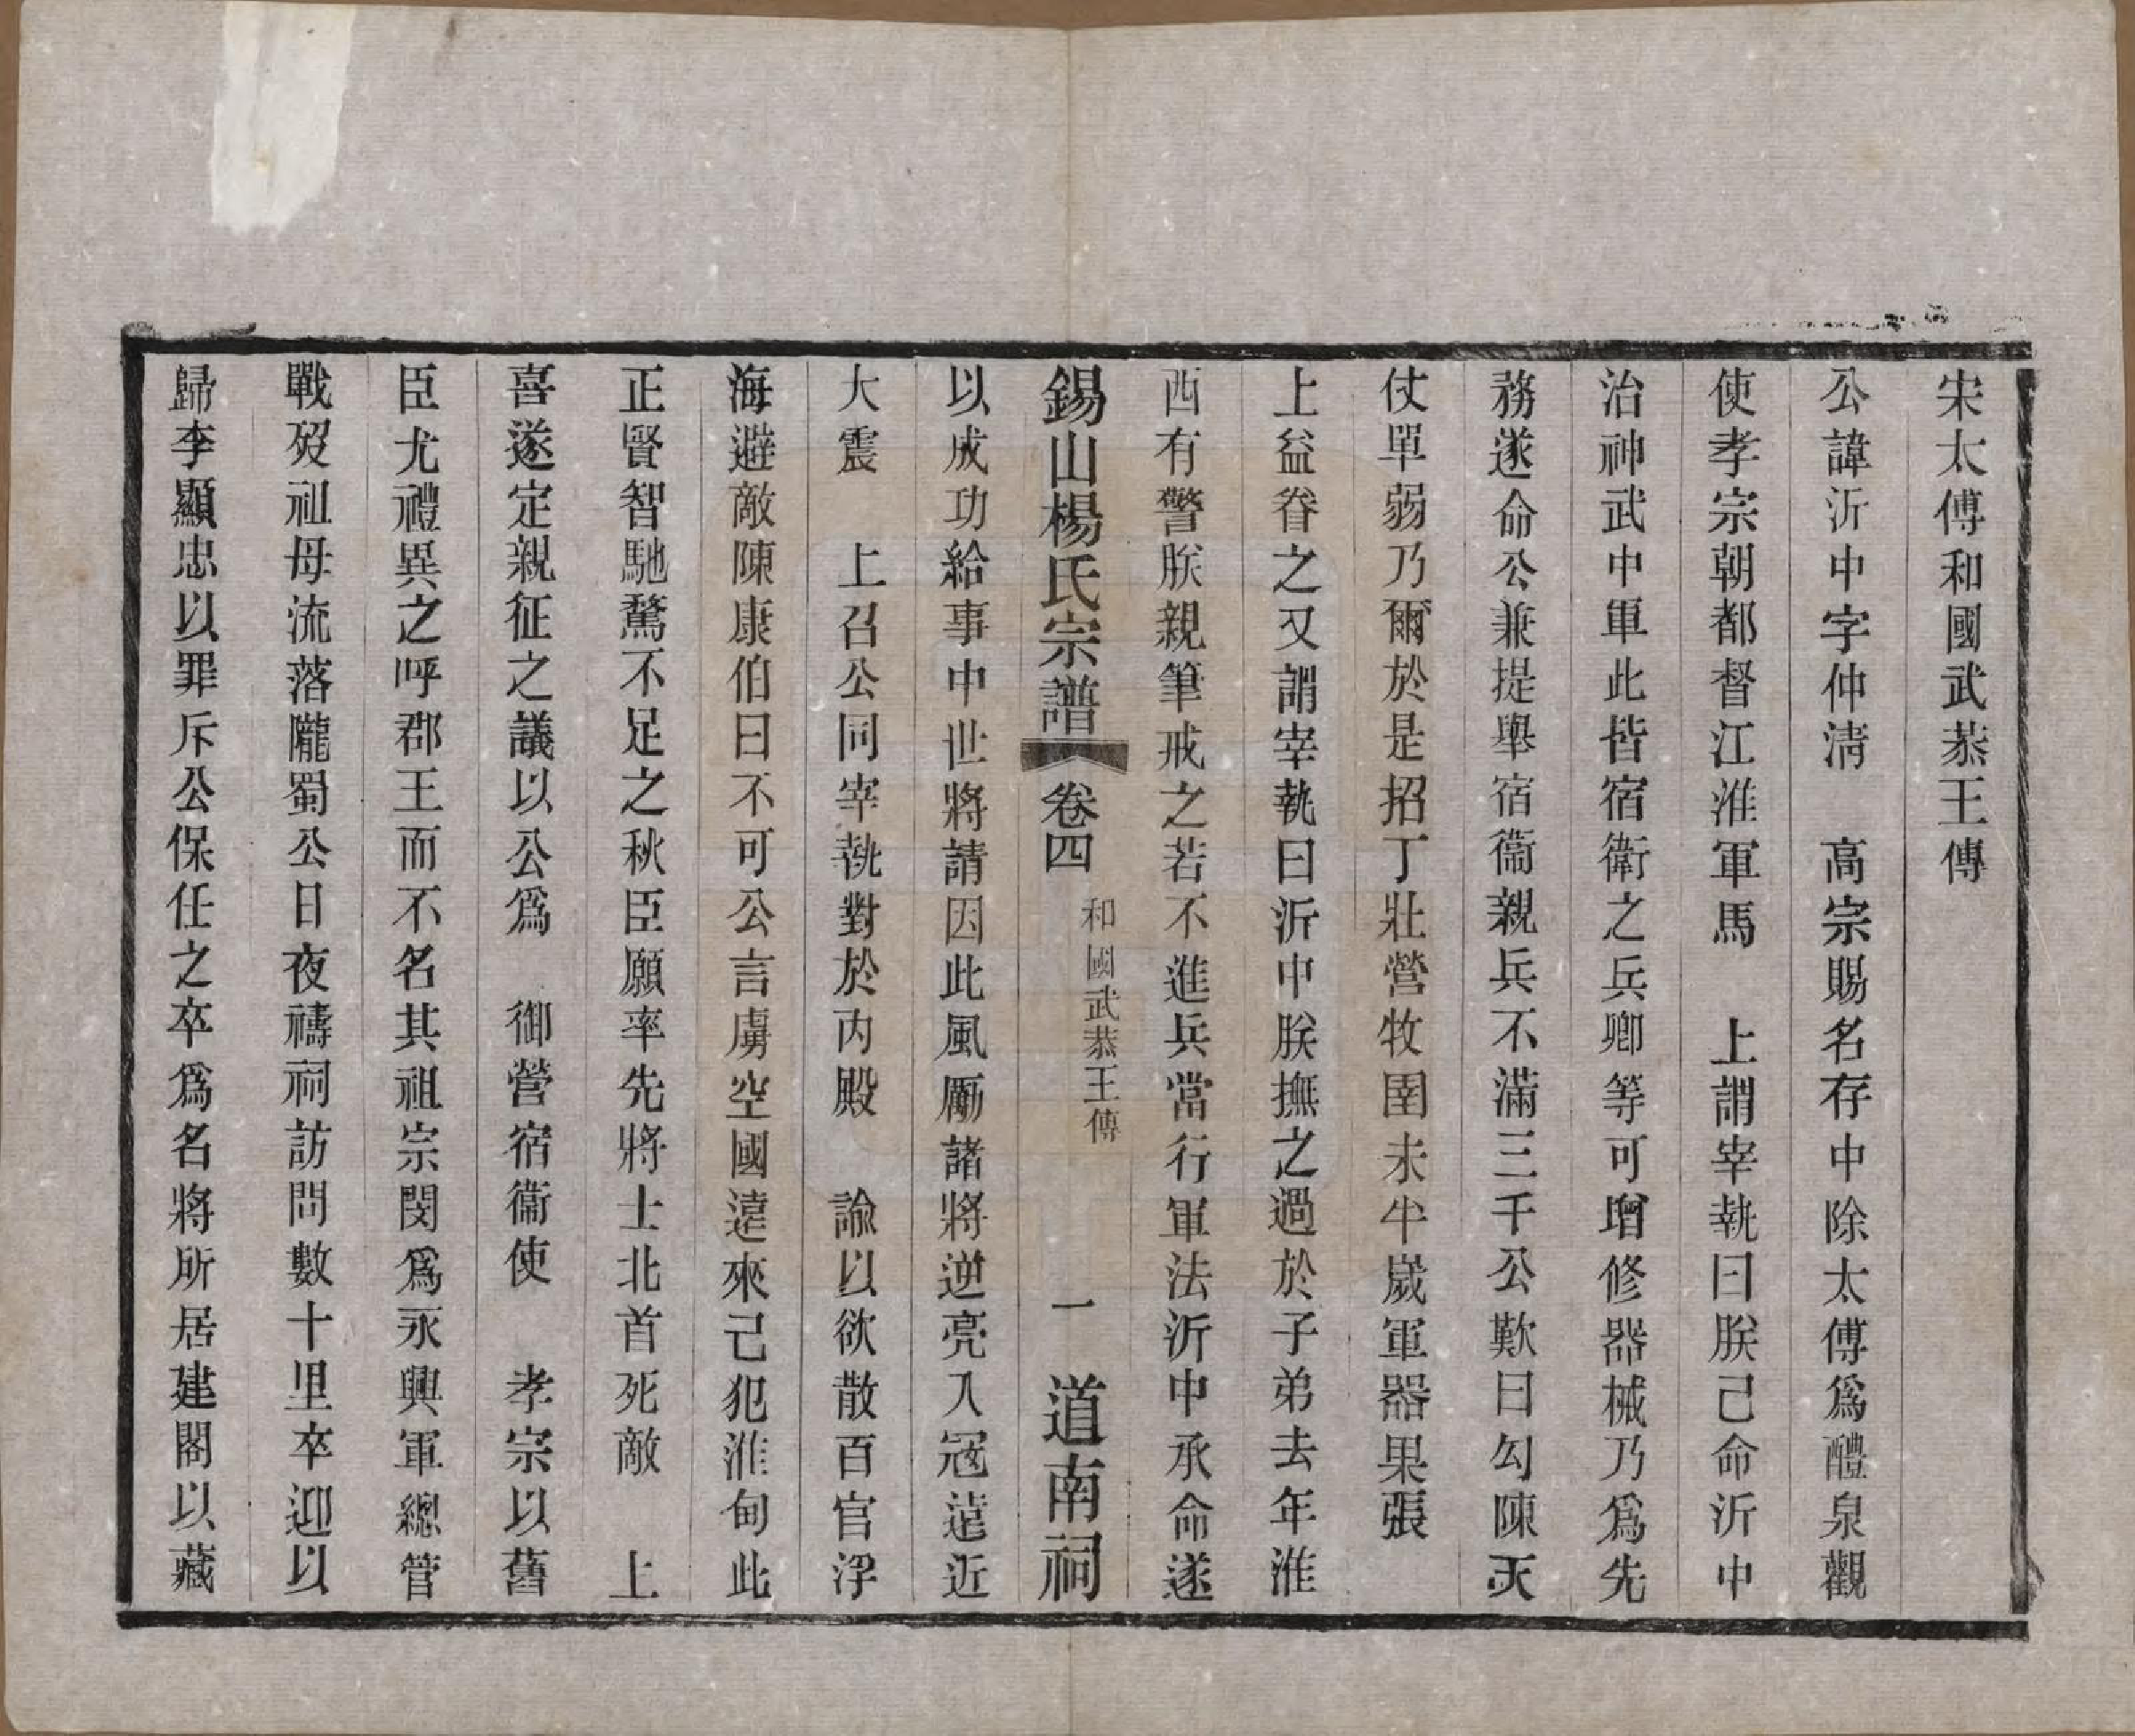 宋太傅和國武恭王傳
公諱沂中字仲淸　高宗賜名存中除太傅爲醴泉觀
使孝宗朝都督江淮軍馬　上謂宰執曰朕己命沂中
治神武中軍此皆宿衛之兵卿等可增修器械乃爲先
務遂命公兼提舉宿衞親兵不滿三千公歎曰勾陳天
仗單弱乃爾於是招丁壯營牧圉未半嵗軍器果張
上益眷之又謂宰執曰沂中朕撫之過於子弟去年淮
西有警朕親筆戒之若不進兵當行軍法沂中承命遂
錫山楊氏宗譜　卷四　和國武恭王傳　一　道南祠
以成功給事中世將請因此風厲諸將逆亮入寇遠近
大震　上召公同宰執對於内殿　諭以欲散百官浮
海避敵陳康伯曰不可公言虜空國遠來己犯淮甸此
正賢智馳騖不足之秋臣願率先將士北首死敵　上
喜遂定親征之議以公爲　御營宿衞使　孝宗以舊
臣尤禮異之呼郡王而不名其祖宗閔爲永興軍總管
戰歿祖母流落隴蜀公日夜禱祠訪問數十里卒迎以
歸李顯忠以罪斥公保任之卒爲名將所居建閣以藏